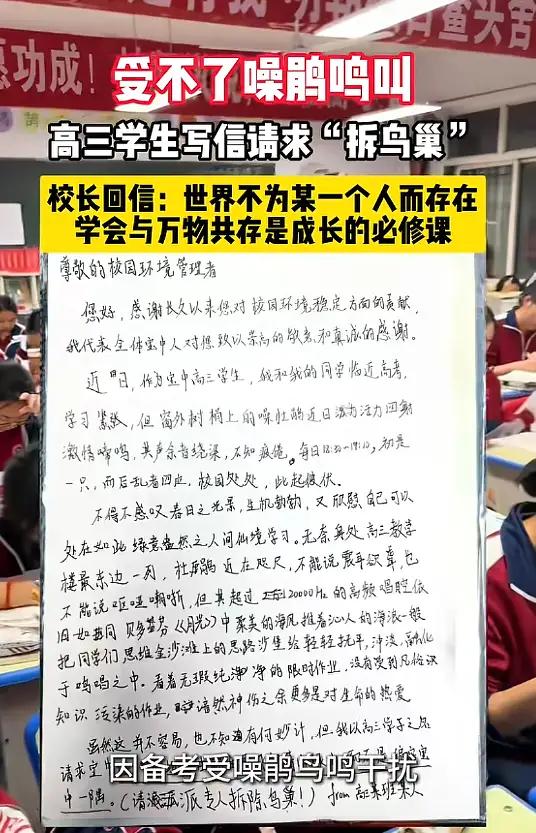 受不了噪鹃鸣叫
高三学生写信请求“拆鸟巢”
校长回信：世界不为某一个人而存在
学会与万物共存是成长的必修课
尊敬的校园环境管理者
您好，感谢长久以来您对校园环境稳定方面的贡献，
我代表全体宝中人对您致以崇高的敬意和真诚的感谢。
近日，作为宝中高三学生，我和我的同学临近高考，
学习紧张，但窗外树梢上的噪杜鹃近日活力四射
激情啼鸣，其声余音绕梁，不知疲倦。每日18:30-19:10，初是
一只，而后乱者四应，校园处处，此起彼伏。
不得不感叹春日之光景，生机勃勃，又欣慰自己可以
处在如此绿意盎然之人间仙境学习。无奈身处高三教学
楼最东边一列，杜鹃近在咫尺，不能说震耳欲聋，也
不能说呕哑嘲哳，但其超过20000Hz的高频唱腔依
旧如同贝多芬《月光》中聚美的海风推着沁人的海浪一般
把同学们思维金沙滩上的思路沙堡给轻轻托平，冲淡，融化
于鸣唱之中。看着无瑕纯净的限时作业，没有受到凡俗识
知识污染的作业，黯然神伤之余更多是对生命的热爱
虽然这并不容易，也不知有何妙计，但我以高三学子之名
请求宝中
因备考受噪鹃鸟鸣干扰
中一隅。（请派专人拆除鸟巢！）from 高某班某人